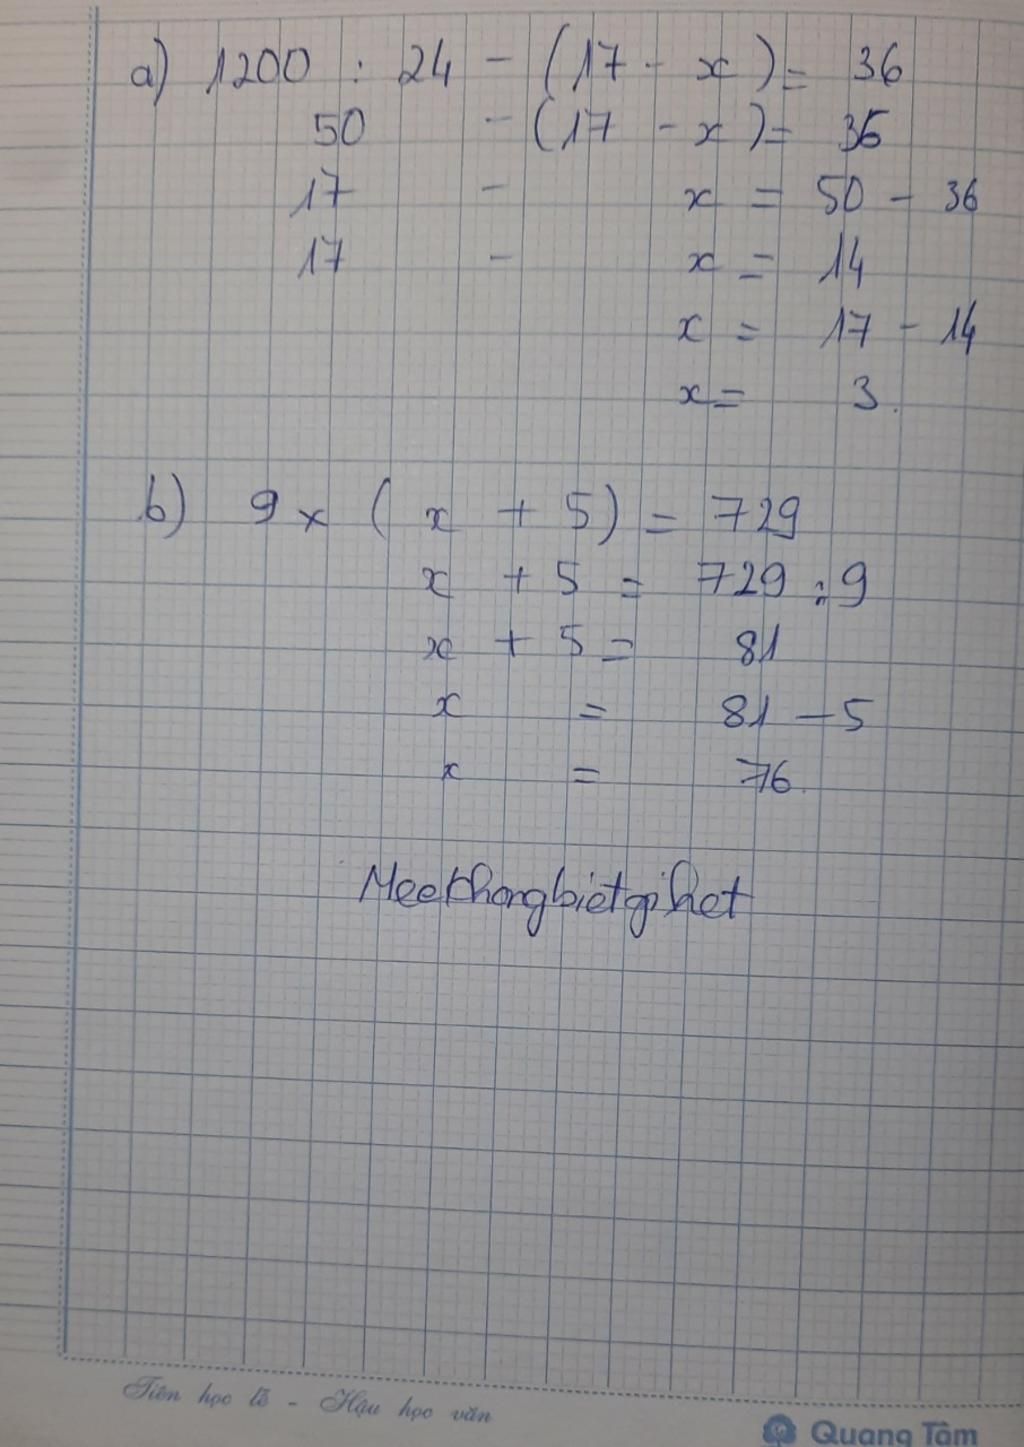 a) 1200 : 24 - (17 - x) = 36
50 - (17 - x) = 36
17 - x = 50 - 36
17 - x = 14
x = 17 - 14
x = 3.
b) 9 x ( x + 5) = 729
x + 5 = 729 : 9
x + 5 = 81
x = 81 - 5
x = 76.
Meekhongbietgihet
Tiên học lễ - Hậu học văn
Quang Tâm